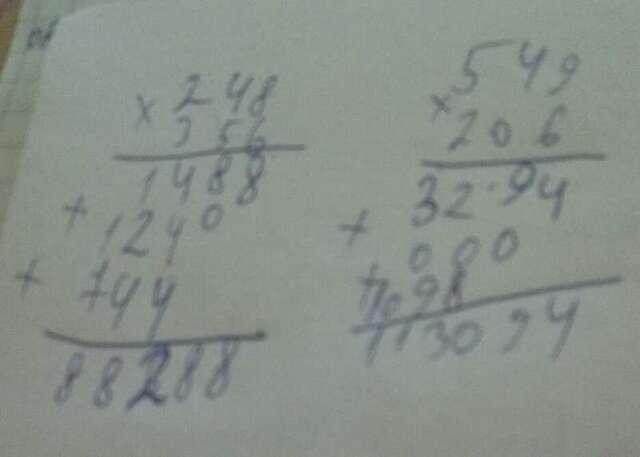 × 248
356
1488
+ 1240
+ 744
88288
× 549
206
32·94
+ 000
+ 1098
113094